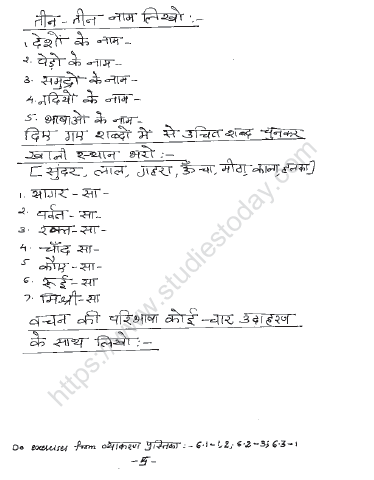 तीन - तीन नाम लिखो :-
1. देशों के नाम -
2. पेड़ों के नाम -
3. समुद्रों के नाम -
4. नदियों के नाम -
5. भाषाओं के नाम -
दिए गए शब्दों में से उचित शब्द चुनकर
खाली स्थान भरो :-
[ सुंदर, लाल, गहरा, ऊँचा, मीठा, काला, हलका ]
1. सागर - सा
2. पर्वत - सा
3. रक्त - सा
4. चाँद सा -
5 कौए - सा -
6. रूई - सा
7. मिश्री - सा
वचन की परिभाषा कोई चार उदाहरण
के साथ लिखो :-
Do exercises from व्याकरण पुस्तिका :- 6.1-1,2; 6.2-3; 6.3-1
-5-
https://www.studiestoday.com